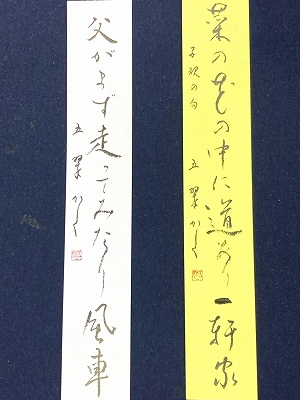 菜の花の中に道あり一軒家
子規の句
五翠かく
父がまず走ってみたり風車
五翠かく